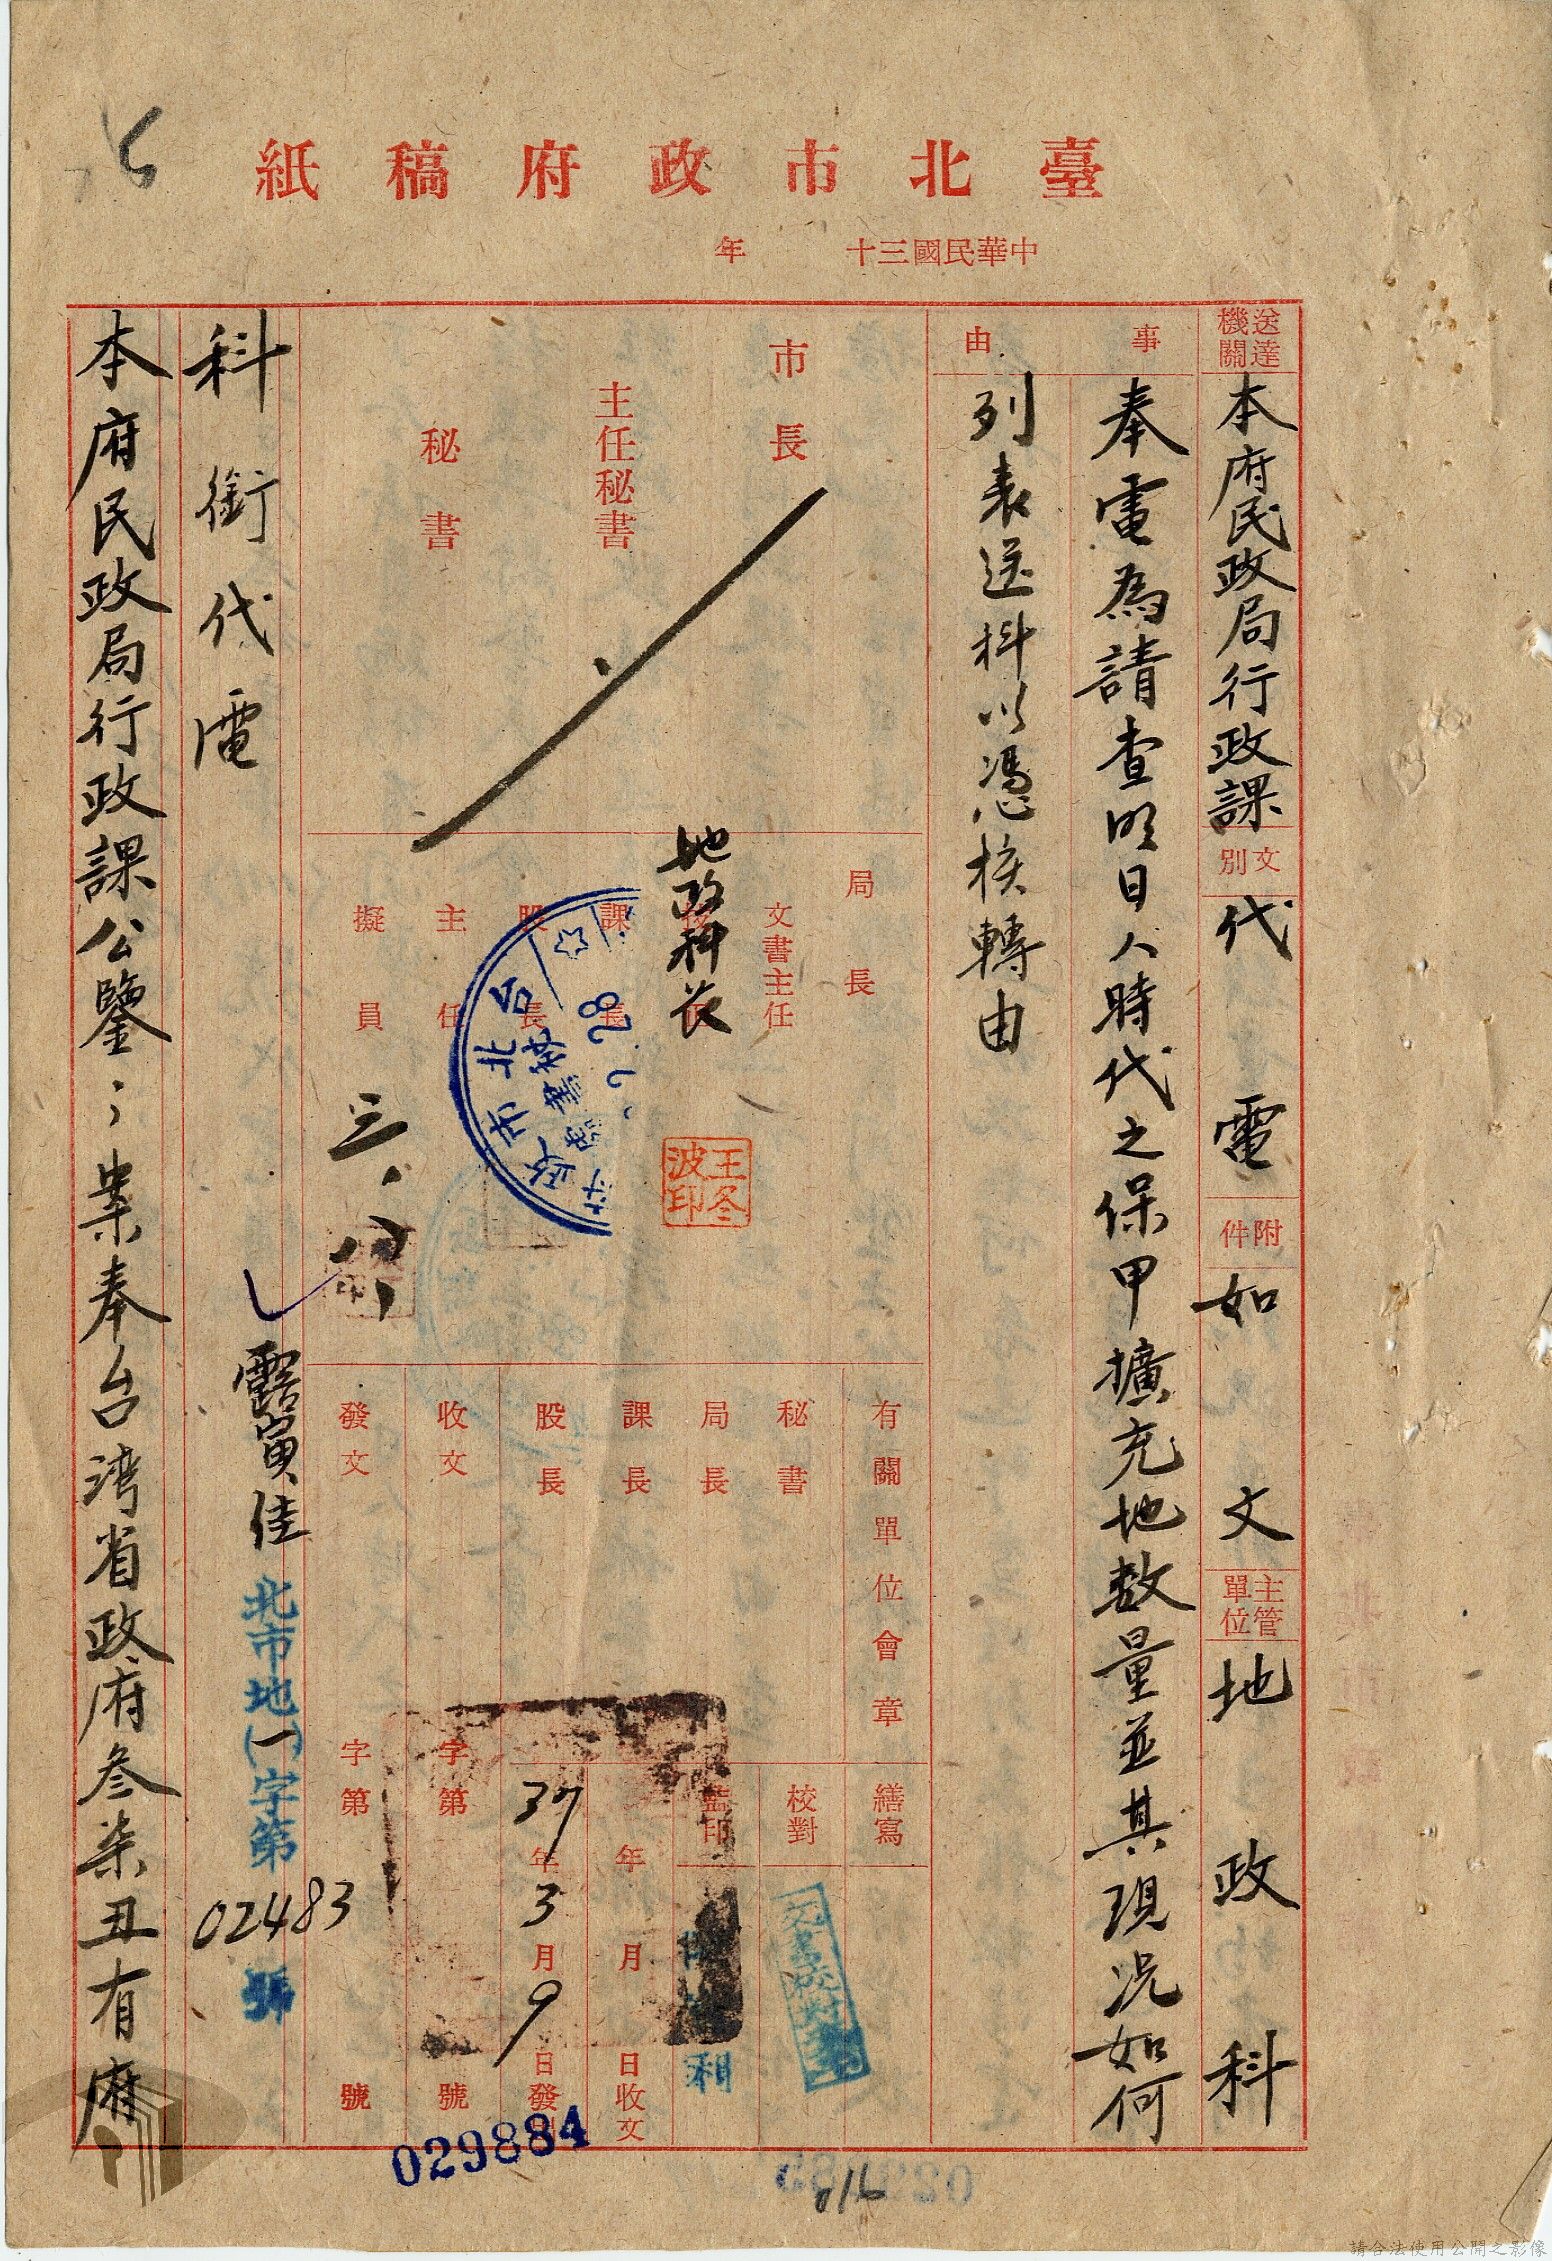 臺北市政府稿紙
中華民國三十 年
送達機關 本府民政局行政課
文別 代電
附件 如文
主管單位 地政科
事由
奉電為請查明日人時代之保甲擴充地數量並其現況如何
列表送科以憑核轉由
市長
主任秘書
秘書
局長
文書主任
地政科長
王冬波印
課長
股長
主任
擬員
三、八、
台北市政府
28
有關單位會章
秘書
局長
課長
股長
收文 字第 號
發文 字第 號
繕寫
校對
監印
文書校對
年 月 日收文
37年3月9日發
029884
科銜代電
露寅佳
北市地(一)字第02483號
本府民政局行政課公鑒：案奉台湾省政府叁柒丑有府
請合法使用公開之影像